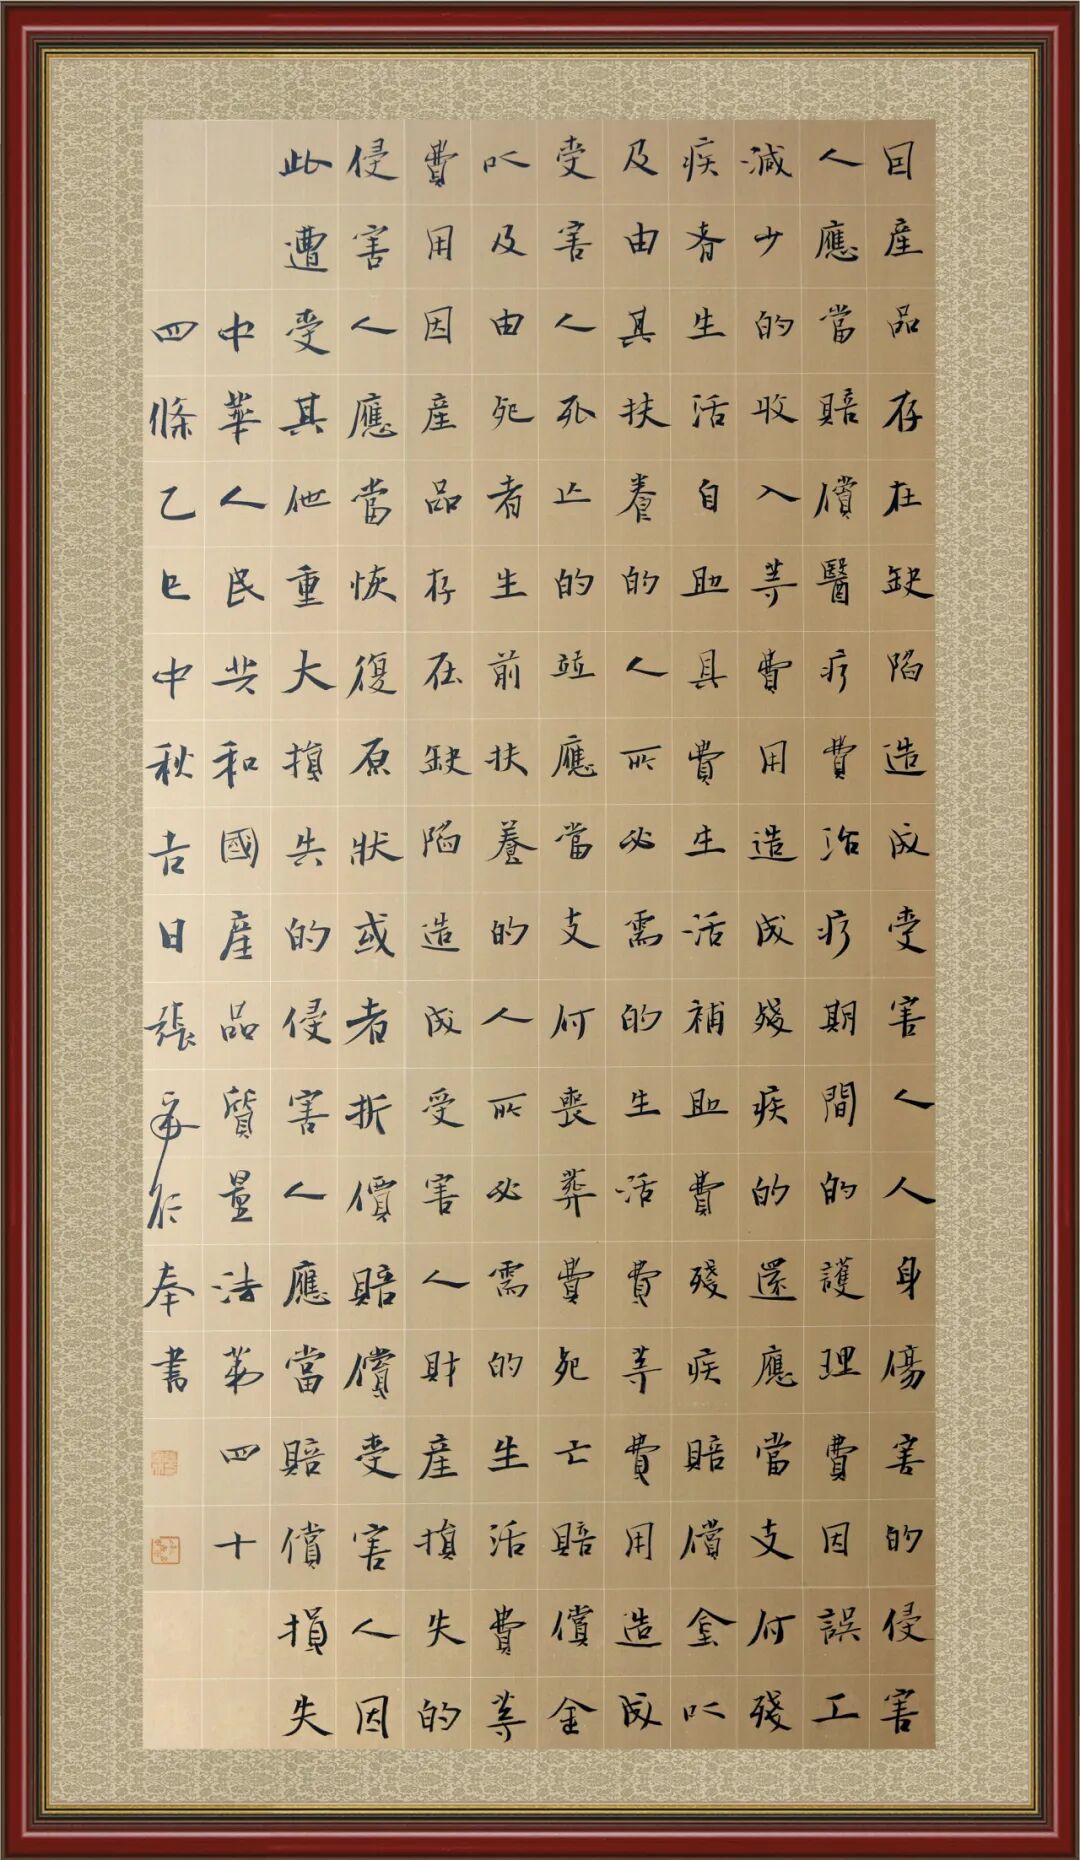 因産品存在缺陷造成受害人人身傷害的侵害
人應當賠償醫疗費治疗期間的護理費因誤工
減少的收入等費用造成殘疾的還應當支付殘
疾者生活自助具費生活補助費殘疾賠償金以
及由其扶養的人所必需的生活費等費用造成
受害人死亡的並應當支付喪葬費死亡賠償金
以及由死者生前扶養的人所必需的生活費等
費用因産品存在缺陷造成受害人財産損失的
侵害人應當恢復原狀或者折價賠償受害人因
此遭受其他重大損失的侵害人應當賠償損失
中華人民共和國産品質量法第四十
四條乙巳中秋吉日張奉書